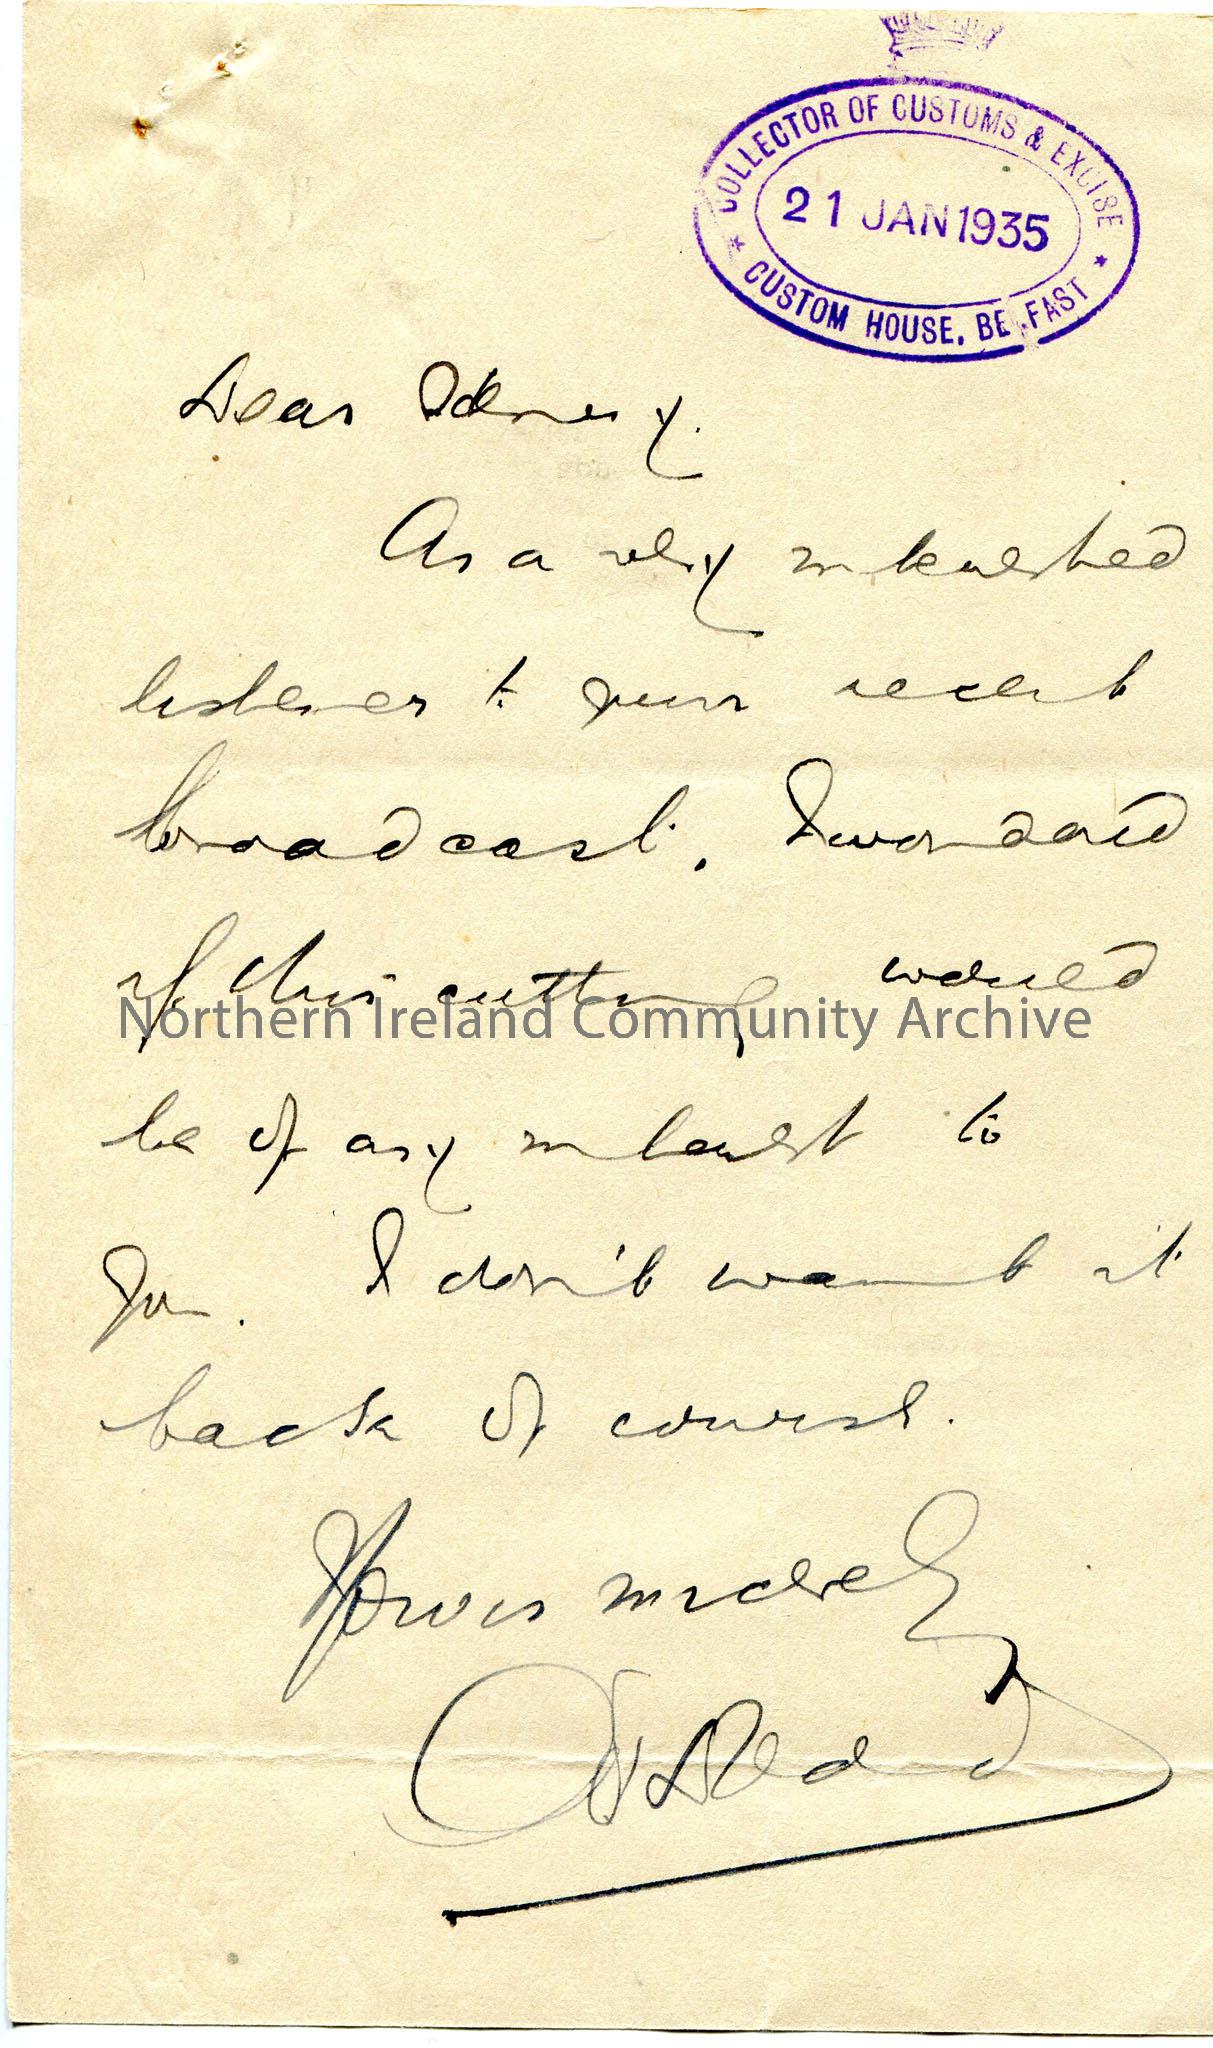 COLLECTOR OF CUSTOMS & EXCISE
21 JAN 1935
CUSTOM HOUSE, BELFAST
Dear
As a very interested
listener to your recent
broadcast, I wondered
if this cutting would
Northern Ireland Community Archive
be of any interest to
you. I don't want it
back of course.
Yours sincerely